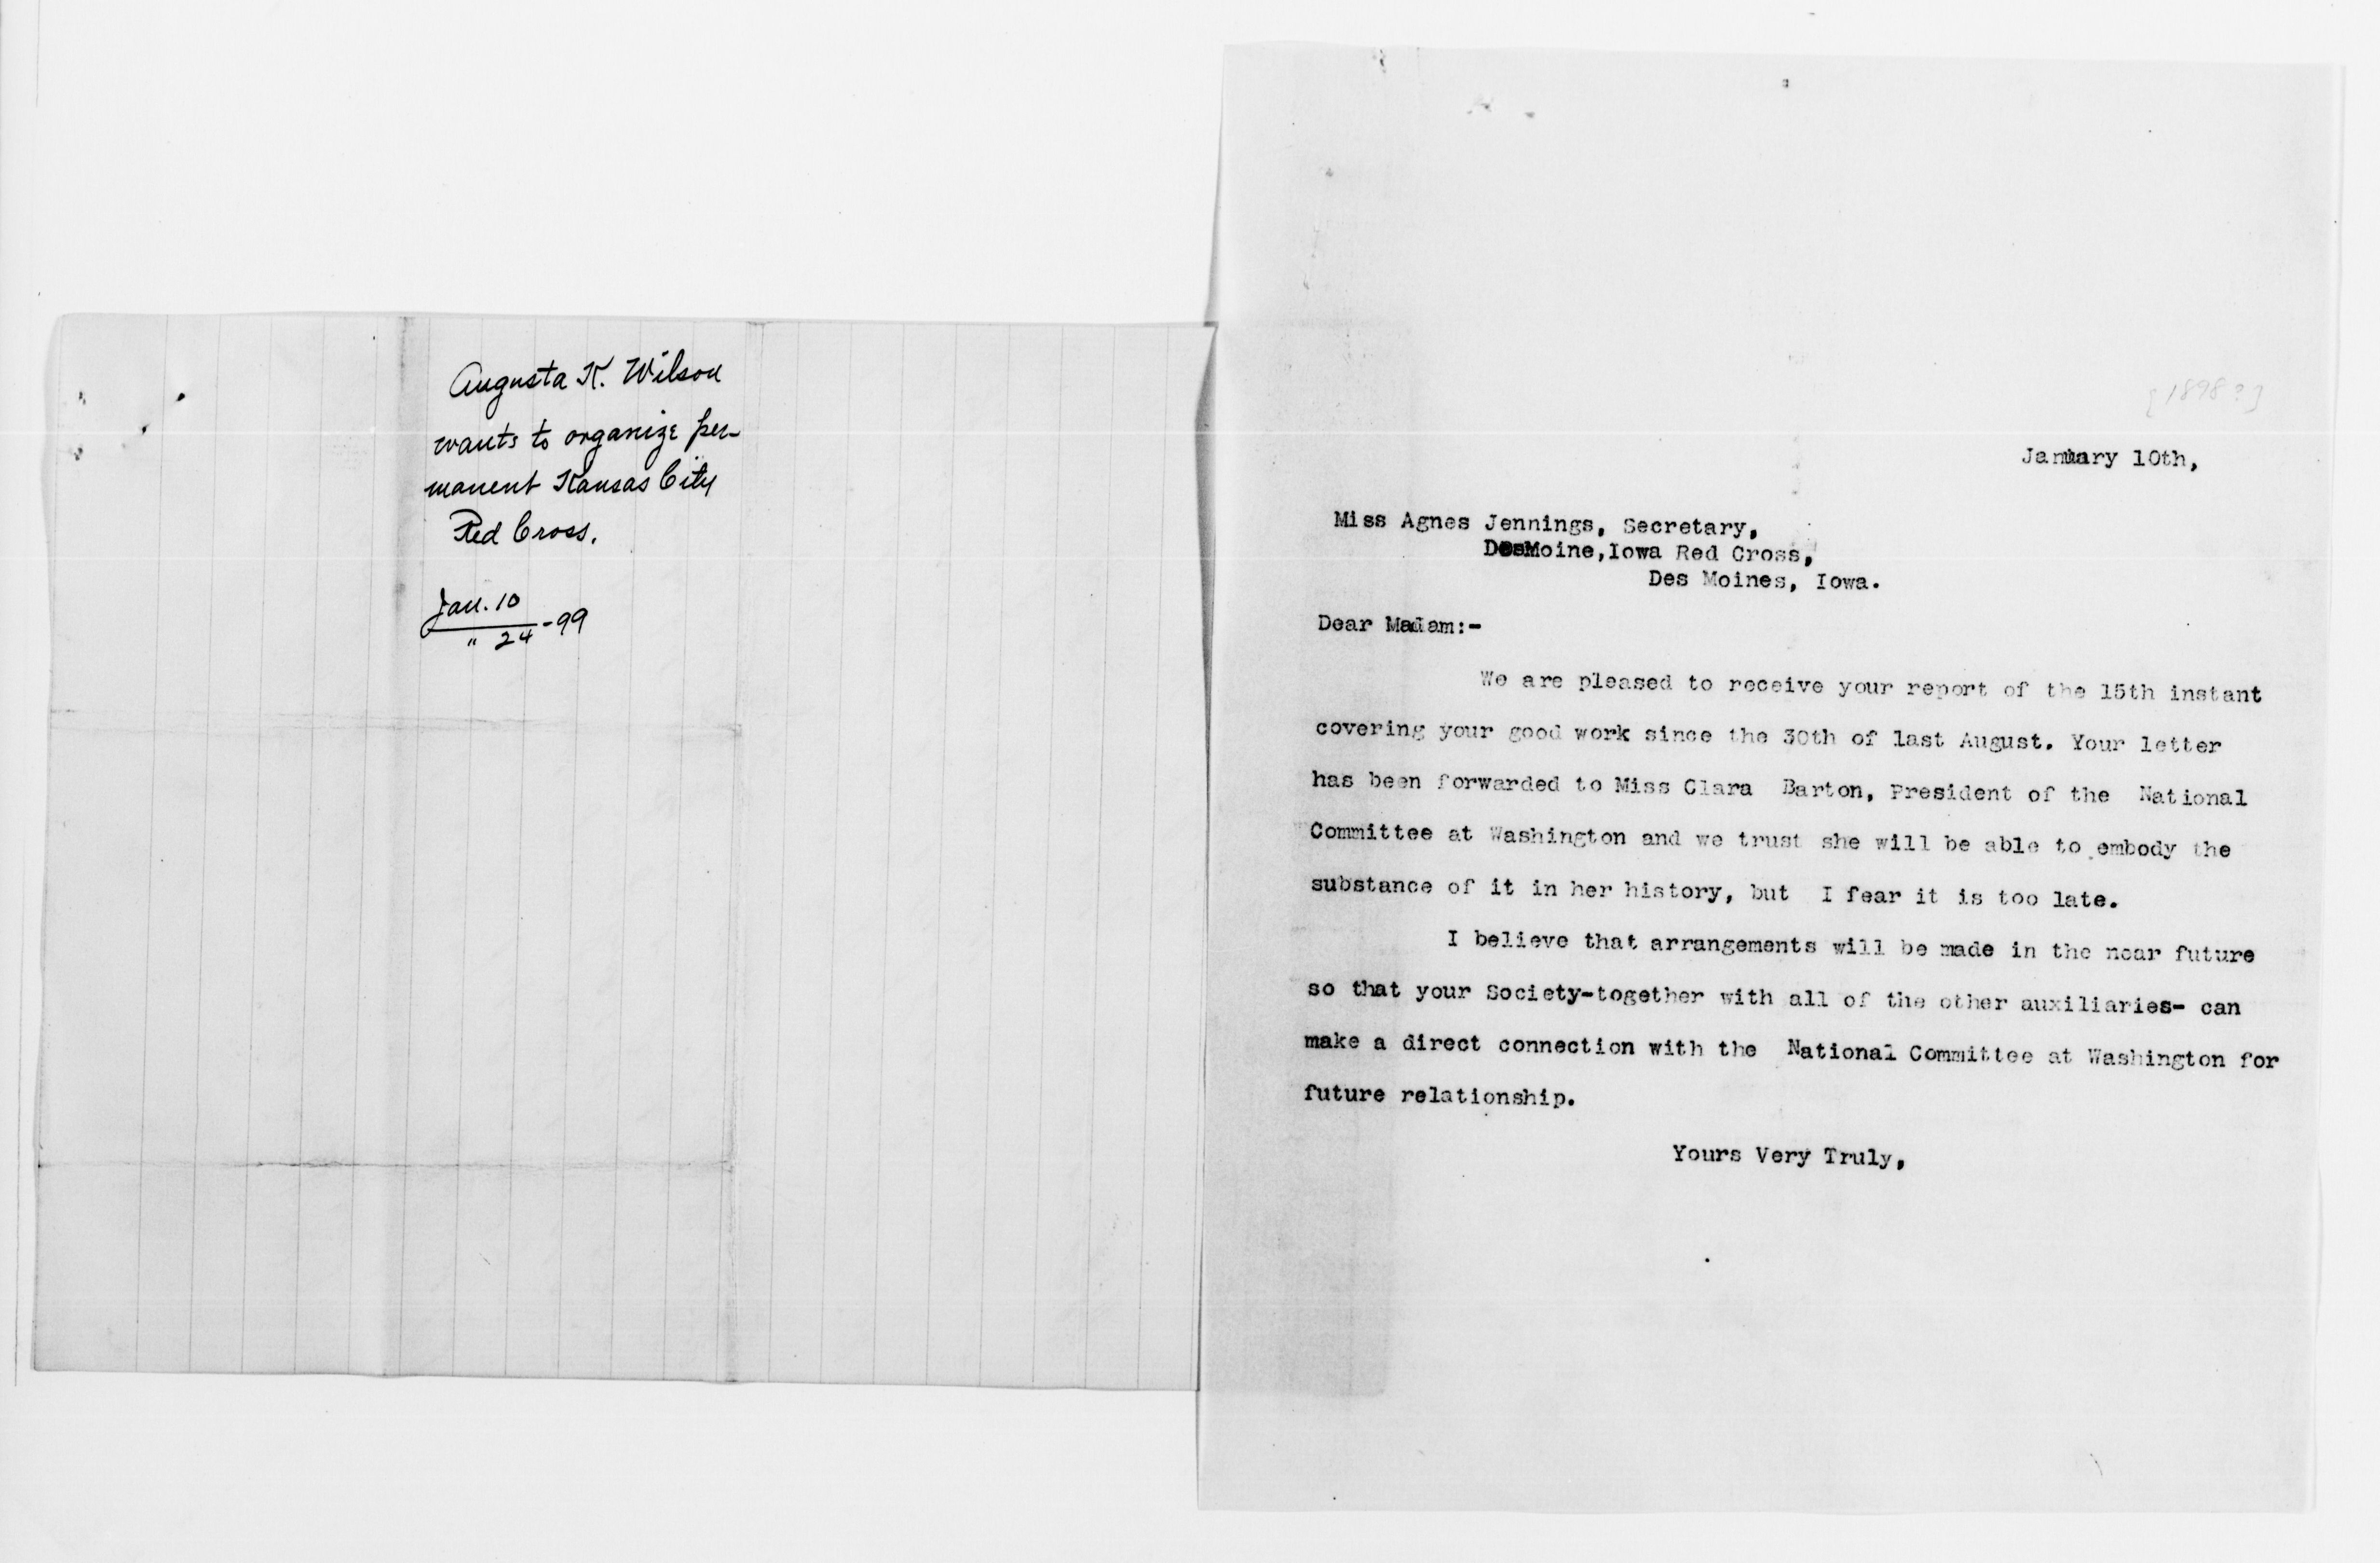 Augusta K. Wilson
wants to organize per-
manent Kansas City
Red Cross.
Jan. 10
" 24 -99
[1898?]
January 10th,
Miss Agnes Jennings, Secretary,
DesMoine,Iowa Red Cross,
Des Moines, Iowa.
Dear Madam:-
We are pleased to receive your report of the 15th instant
covering your good work since the 30th of last August. Your letter
has been forwarded to Miss Clara Barton, President of the National
Committee at Washington and we trust she will be able to embody the
substance of it in her history, but I fear it is too late.
I believe that arrangements will be made in the near future
so that your Society-together with all of the other auxiliaries- can
make a direct connection with the National Committee at Washington for
future relationship.
Yours Very Truly,